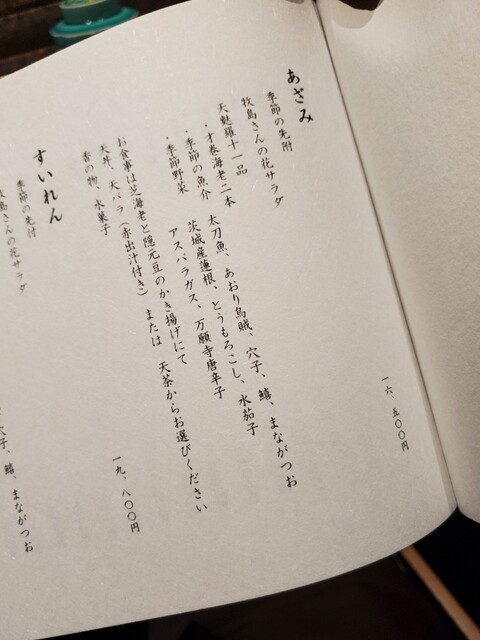 あざみ
一六、五〇〇円
季節の先附
牧島さんの花サラダ
天麩羅十一品
・才巻海老二本
・季節の魚介 太刀魚、あおり烏賊、穴子、鱚、まながつお
・季節野菜 茨城産蓮根、とうもろこし、水茄子
アスパラガス、万願寺唐辛子
お食事は芝海老と隠元豆のかき揚げにて
天丼、天バラ（赤出汁付き） または 天茶からお選びください
香の物、水菓子
すいれん
一九、八〇〇円
季節の先付
牧島さんの花サラダ
穴子、鱚、まながつお